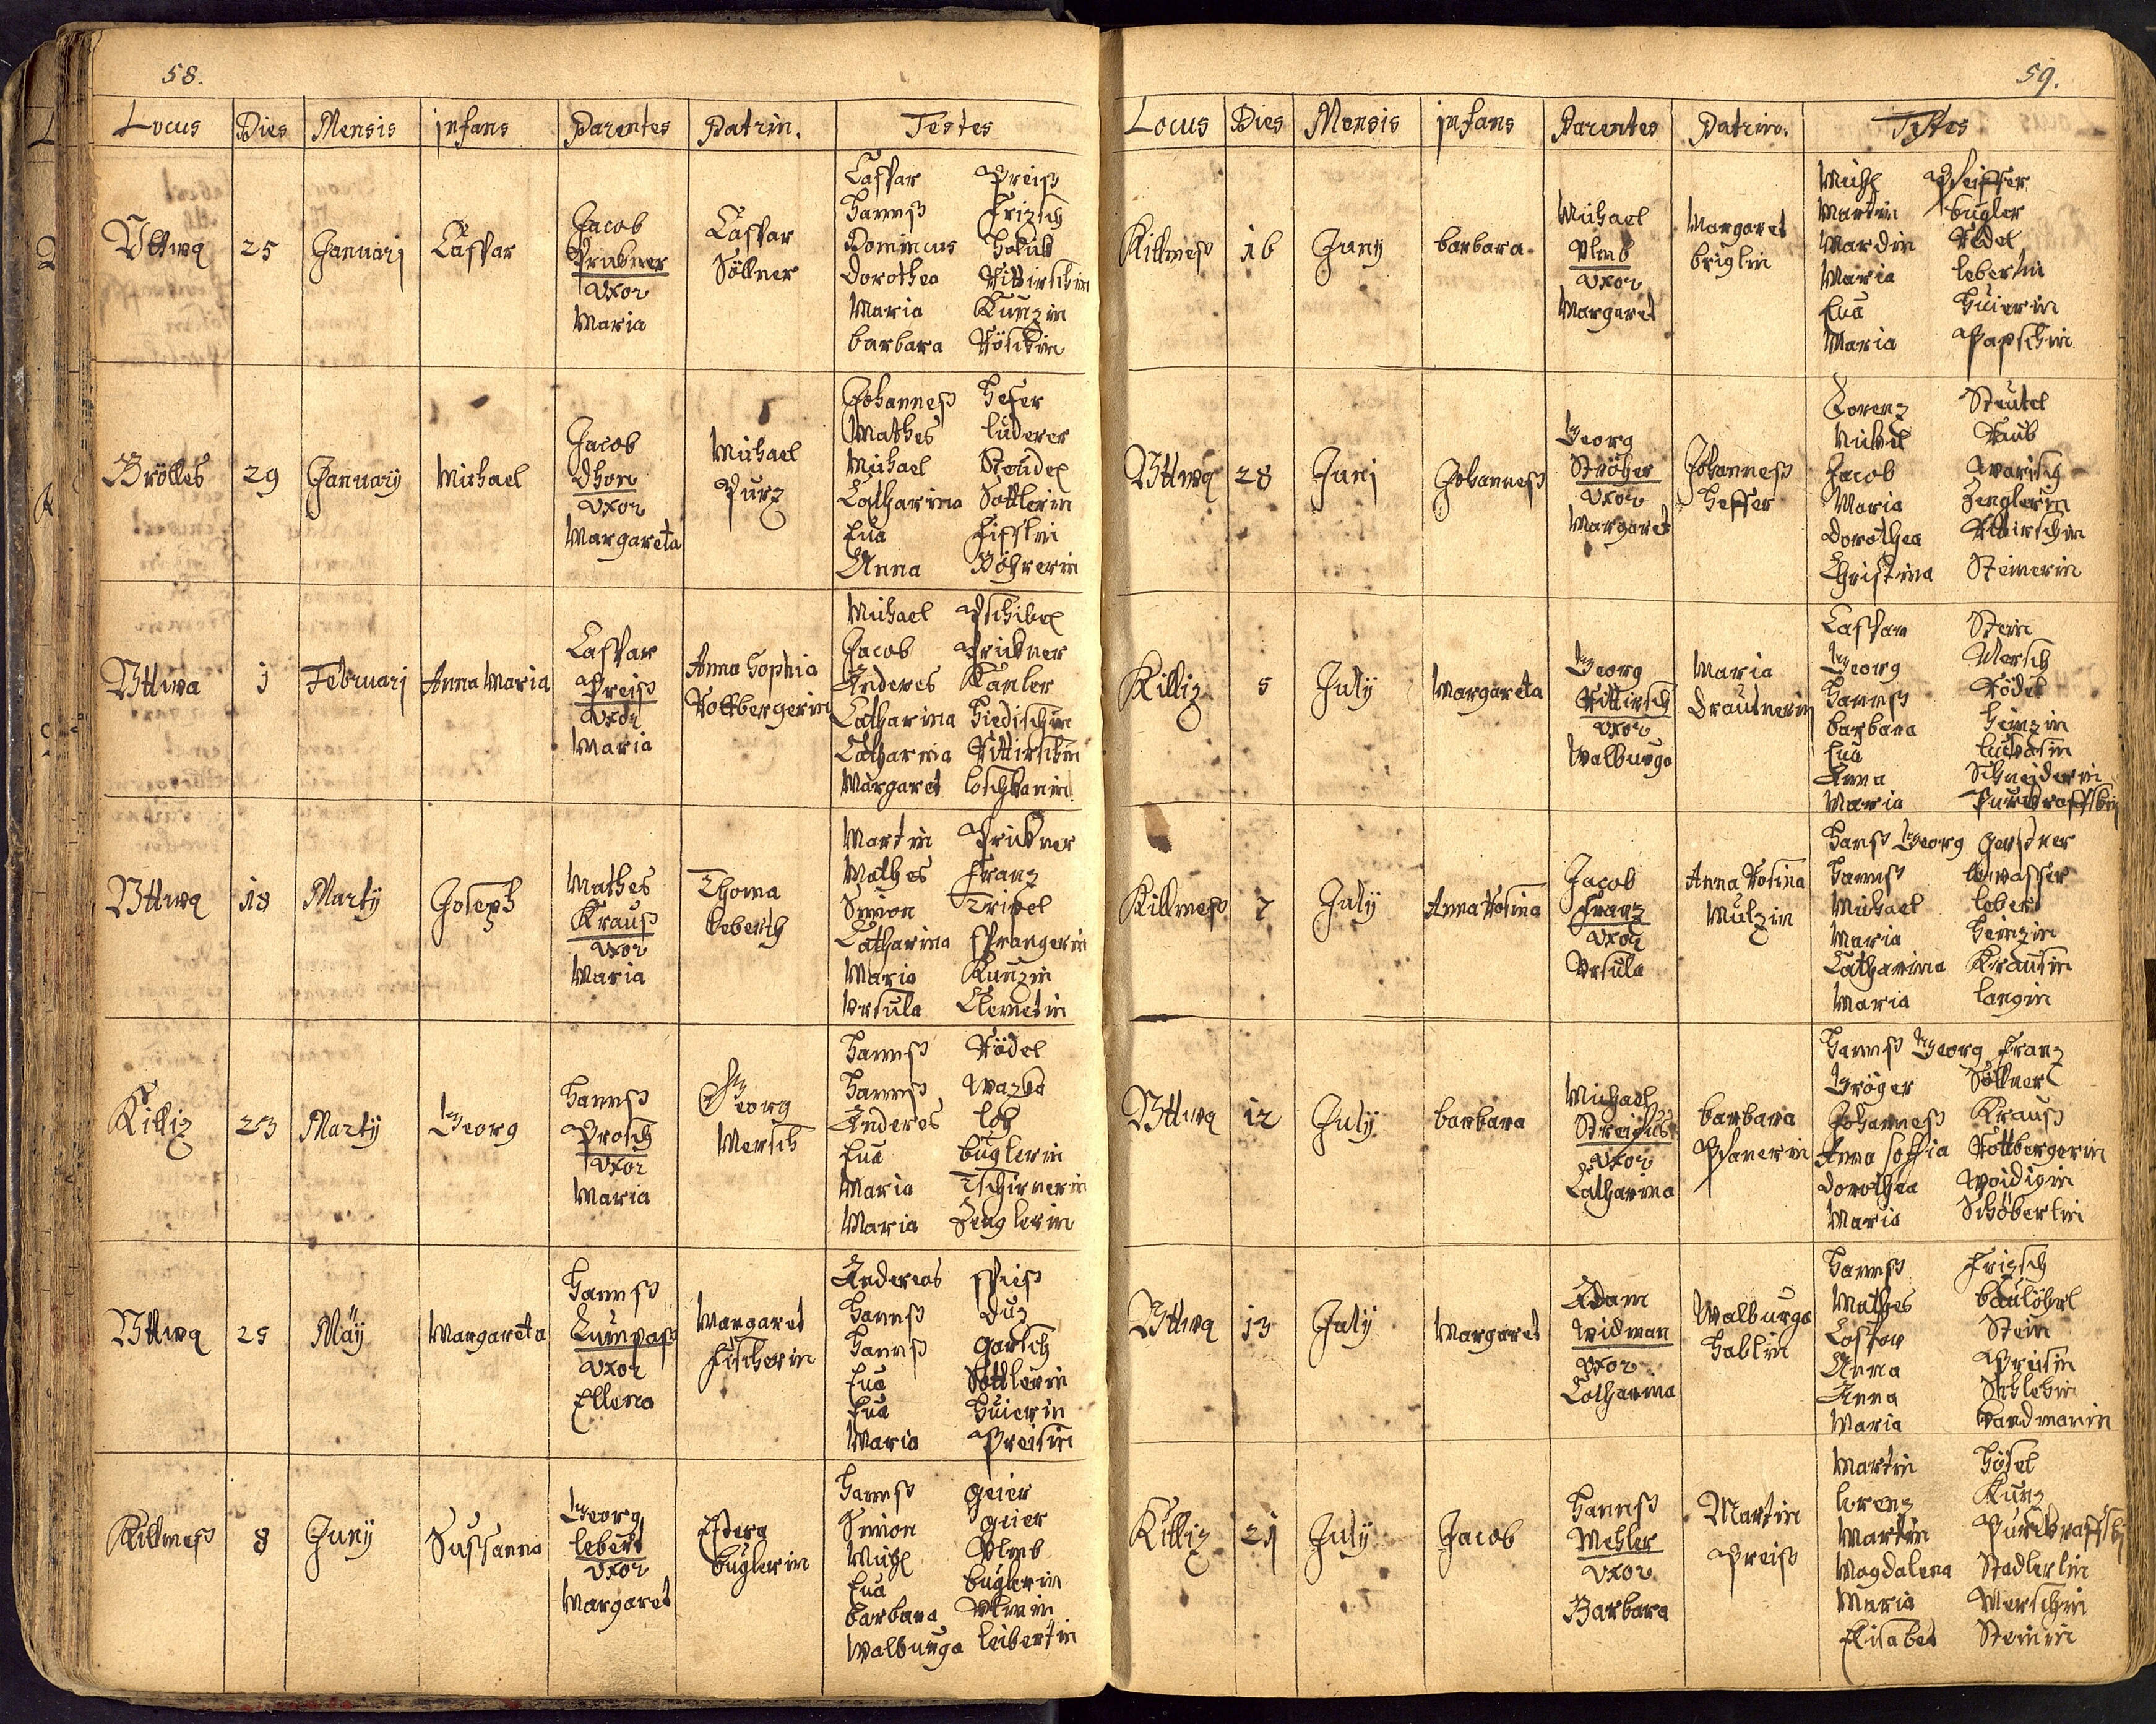 58.
Locus Dies Mensis infans Parentes Patrin. Testes
Vttwa 25 Januarj Caspar
Jacob
Pruckner
Vxor
Maria
Caspar
Söllner
Caspar Preiß
Hannß Frizsch
Dominicus
Dorothea Rittirschin
Maria Kunzin
barbara
Grölles 29 January Michael
Jacob
Dhon
Vxor
Margareta
Michael
Purz
Johanneß Hefer
Mathes luderer
Michael Steudel
Catharina Sottlerin
Eua
Anna Böhrerin
Vttwa 1 Februarj Anna Maria
Caspar
Preiß
Vxor
Maria
Anna Sophia
Rottbergerin
Michael Pschibel
Jacob Pruckner
Anderes Kanler
Catharina Hiedischin
Catharina Rittirschin
Margaret loschkanin
Vttwa 18 Marty Joseph
Mathes
Krauß
Vxor
Maria
Thoma
leberth
Martin Pruckner
Mathes Franz
Simon Tripel
Catharina Sprangerin
Maria Kunzin
Vrsula Clemetin
Killiz 23 Marty Georg
Hannß
Prosch
Vxor
Maria
Georg
Mersch
Hannß Rödel
Hannß Wazka
Anderes loh
Eua buglerin
Maria Tschirnerin
Maria Zenglerin
Vttwa 25 Maÿ Margareta
Hannß
Lumpaß
Vxor
Ellena
Margaret
Fischerin
Andereas Spieß
Hannß Duz
Hannß Gartsch
Eua Sottlerin
Eua Huierin
Maria Preisin
Killmeß 8 Juny Sussanna
Georg
lebert
Vxor
Margaret
Estera
buglerin
Hannß Geier
Simon Geier
Michl Plmb
Eua buglerin
barbara
Walburga leibertin
59.
Locus Dies Mensis infans Parentes Patrin. Testes
Killmeß 16 Juny barbara
Michael
Plmb
Vxor
Margaret
Margaret
briglin
Michl Pfeiffer
Martin bugler
Mardin Rödel
Maria lebertin
Eua Huierin
Maria Papschin
Vttwa 28 Junj Johanneß
Georg
Ströher
Vxor
Margaret
Johanneß
Heffer
Lorenz Steutel
Nickel Raub
Jacob Warisch
Maria Zenglerin
Dorothea Rittirschin
Christina Steinerin
Killiz 5 July Margareta
Georg
Rittirsch
Vxor
Walburga
Maria
Drautnerin
Caspar Stein
Georg Mersch
Hannß Rödel
barbara Heinzin
Eua lucasin
Anna Schneiderin
Maria
Killmeß 7 July Anna Rosina
Jacob
Franz
Vxor
Vrsula
Anna Rosina
Mulzin
Hanß Georg Gerstner
Hannß lewasser
Michael lebert
Maria Heinzin
Catharina Krausin
Maria langin
Vttwa 12 July barbara
Michael
Vxor
Catharina
barbara
Planerin
Hannß Georg Franz
Gröger Söllnerl
Johanneß Krauß
Anna soffia Rottbergerin
Dorothea Woidigin
Maria Schöberlin
Vttwa 13 July Margaret
Adam
Widman
Vxor
Catharina
Walburga
Hablin
Hannß Frizsch
Mathes baulöhrl
Caspar Stein
Anna Preisin
Anna
Maria
Killiz 21 July Jacob
Hannß
Mehler
Vxor
Barbara
Martin
Preiß
Martin Hösel
lorenz Kunz
Martin
Magdalena Stadlerlin
Maria Merschin
Elisabet Steinin